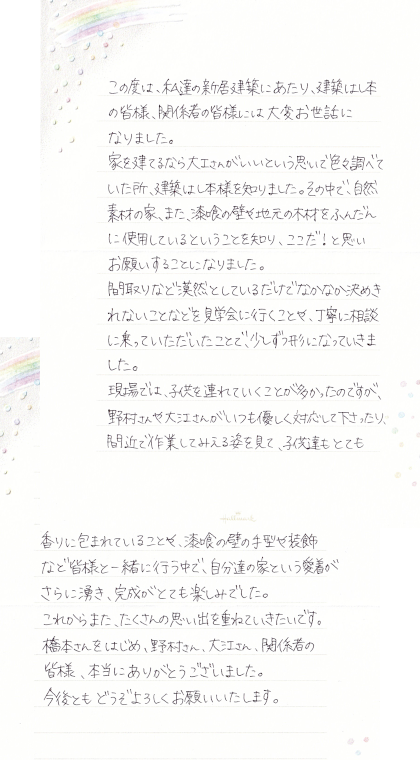 この度は、私達の新居建築にあたり、建築はし本
の皆様、関係者の皆様には大変お世話に
なりました。
家を建てるなら大工さんがいいという思いで色々調べて
いた所、建築はし本様を知りました。その中で、自然
素材の家、また、漆喰の壁や地元の木材をふんだん
に使用しているということを知り、ここだ!と思い
お願いすることになりました。
間取りなど漠然としているだけでなかなか決めき
れないことなどを見学会に行くことや、丁寧に相談
に乗っていただいたことで、少しずつ形になっていきま
した。
現場では、子供を連れていくことが多かったのですが、
野村さんや大江さんがいつも優しく対応して下さったり、
間近で作業してみえる姿を見て、子供達もとても
香りに包まれていることや、漆喰の壁の手型や装飾
など皆様と一緒に行う中で、自分達の家という愛着が
さらに湧き、完成がとても楽しみでした。
これからまた、たくさんの思い出を重ねていきたいです。
橋本さんをはじめ、野村さん、大江さん、関係者の
皆様、本当にありがとうございました。
今後ともどうぞよろしくお願いいたします。